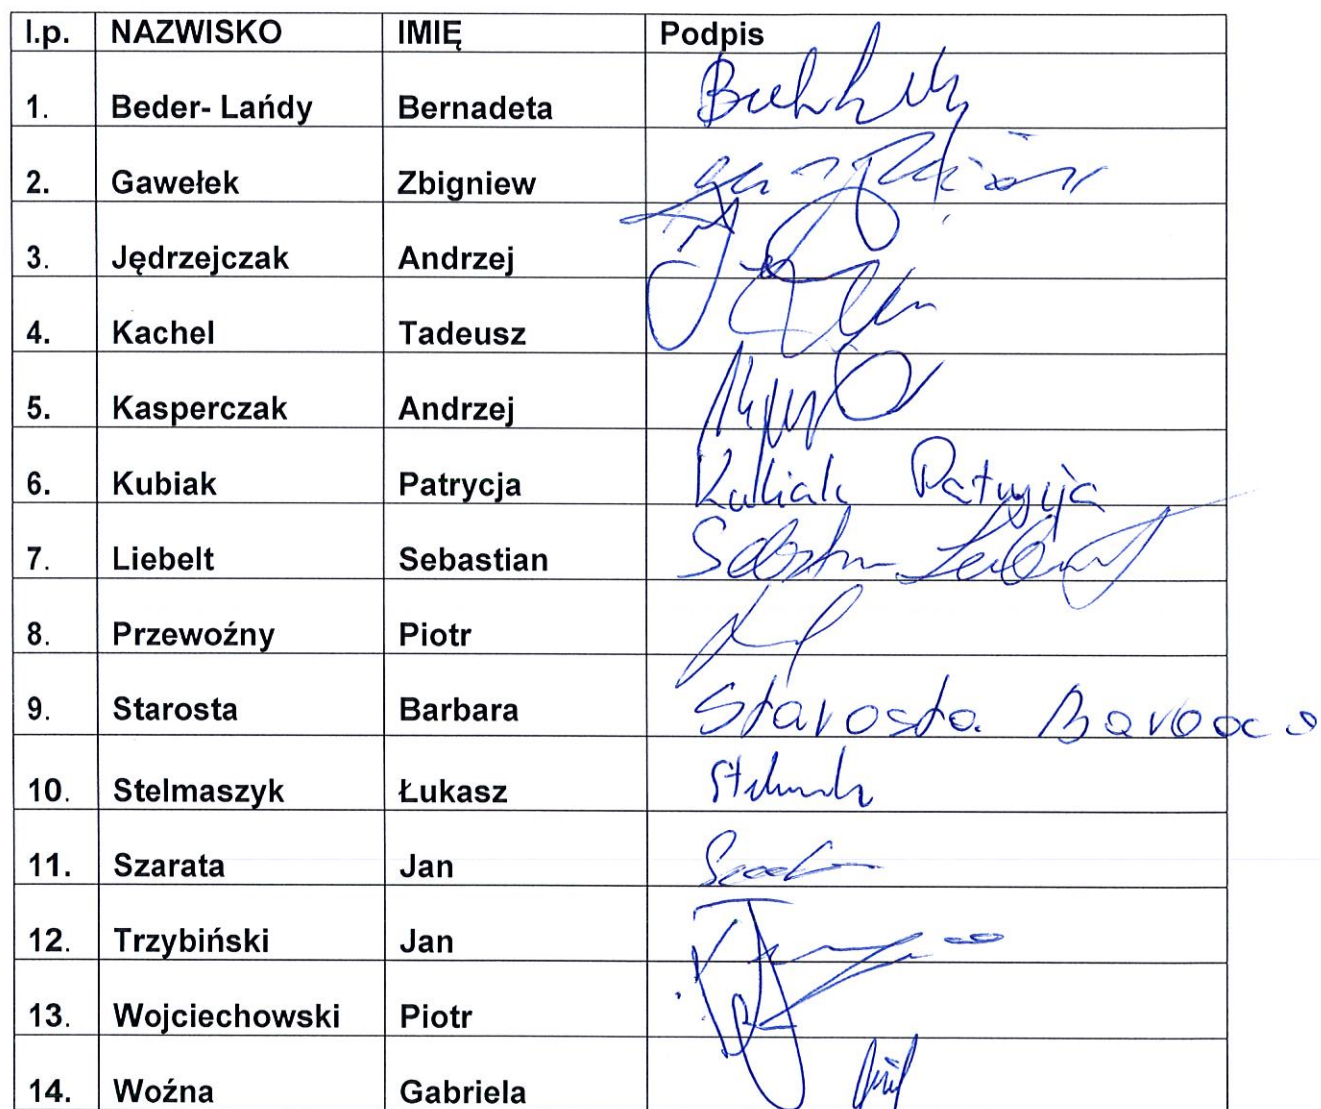 l.p. NAZWISKO IMIĘ Podpis
1. Beder- Lańdy Bernadeta
2. Gawełek Zbigniew
3. Jędrzejczak Andrzej
4. Kachel Tadeusz
5. Kasperczak Andrzej
6. Kubiak Patrycja Kubiak Patrycja
7. Liebelt Sebastian
8. Przewoźny Piotr
9. Starosta Barbara Starosta Barbara
10. Stelmaszyk Łukasz
11. Szarata Jan
12. Trzybiński Jan
13. Wojciechowski Piotr
14. Woźna Gabriela